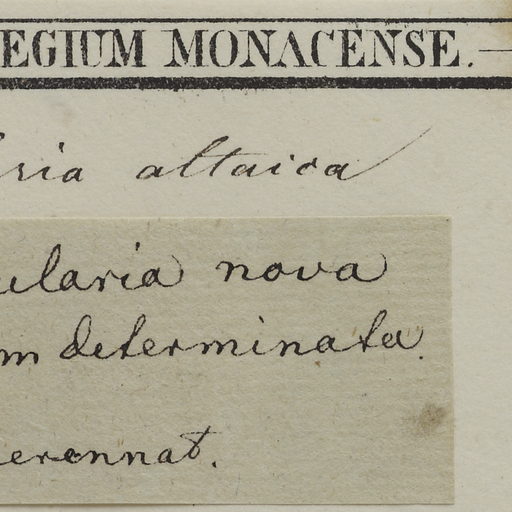 EGIUM MONACENSE.
ria altaica
ularia nova
m determinata.
erennat.